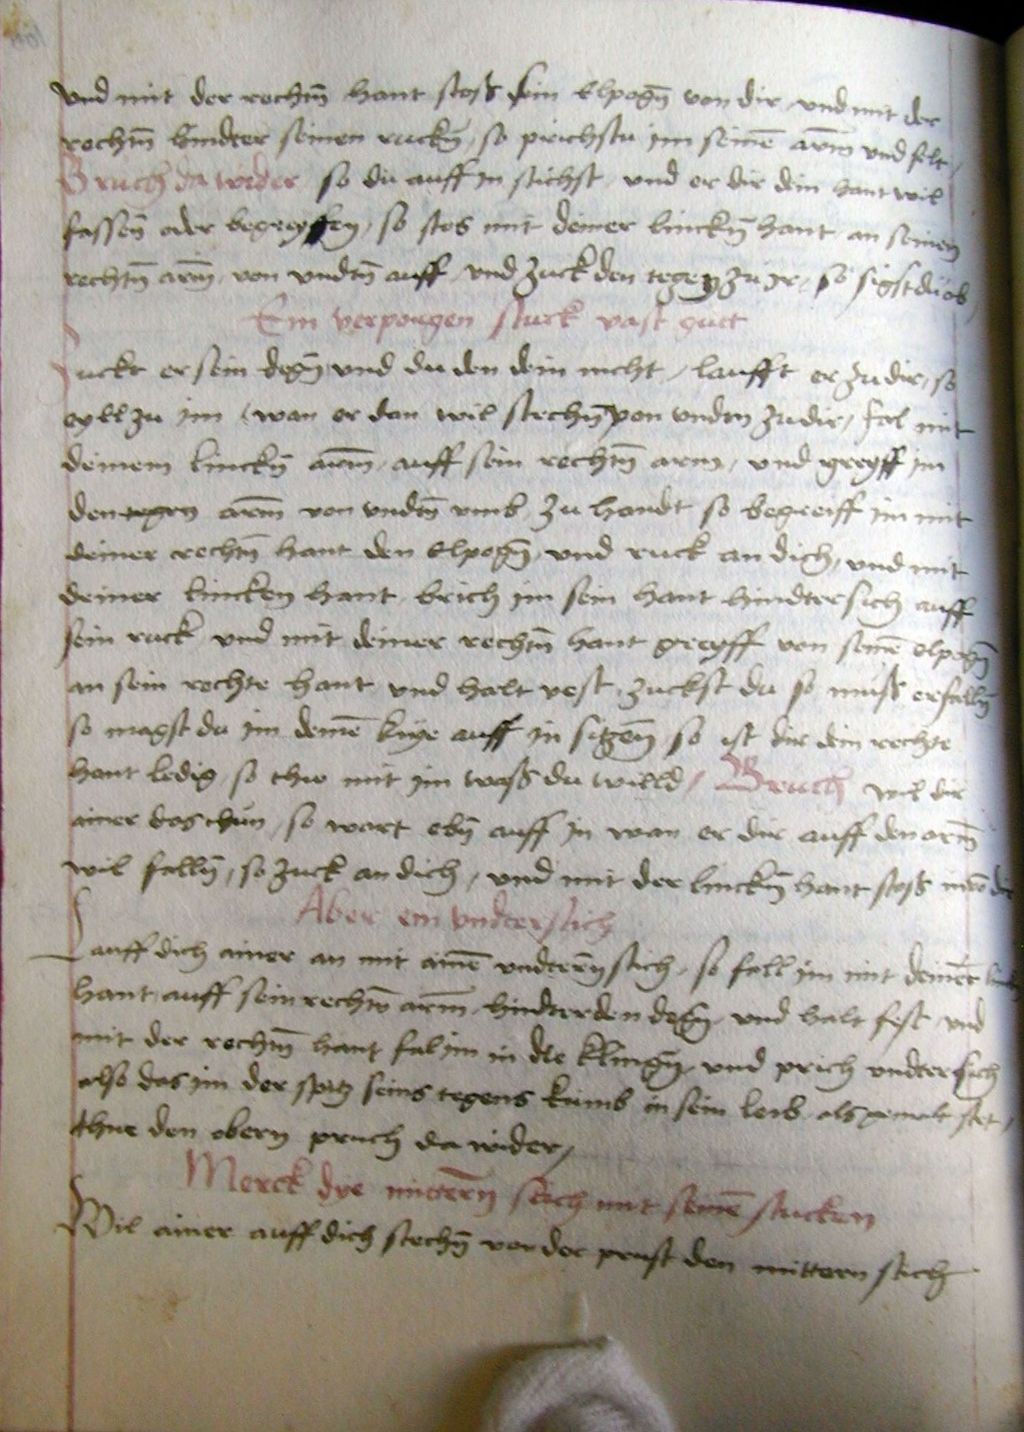 vnd mit der rechtn̄ hant stoß sein Elpogn̄ von dir vnd mit der
rechtn̄ hindter seinen ruckn̄, so prichstu im seinē arm̄ vnd felt,
Bruch da wider so du auff in stichst vnd er dir dein hant wil
fassen̄ oder begreyffen, so stos mit deiner linckn̄ hant an seinen
rechtn̄ arm̄, von vndtn̄ auff vnd zuck den tegen zu ir, so sigst du ob
Ein verporgen stuck vast gutt
Zuckt er sein degn̄ vnd du den dein nicht, laufft er zu dir, so
eyll zu im, wan er dan wil stechn̄ von vndtn zu dir, fal mit
deinem linckn̄ arm̄, auff sein rechtn̄ arm, vnd greyff im
den tegen arm̄ von vndtn̄ vmb, zu handt so begreiff im mit
deiner rechtn̄ hant den Elpogn̄, vnd ruck an dich, vnd mit
deiner lincken hant brich im sein hant hindtersich auff
sein ruck vnd mit deiner rechtn̄ hant greyff von seinē elpogn̄
an sein rechte hant vnd halt vest, zuckst du so muß er falln̄
so magst du im deinē knye auff in seczen̄, so ist dir dein rechte
hant ledig, so thw mit im waß du willd, Bruch wil dir
ainer das thun, so wart ebn̄ auff in wan er dir auff den arm̄
wil falln̄, so zuck an dich, vnd mit der linckn̄ hant stoß in vō dir
Aber ein vndterstich
Lauff dich ainer an mit ainē vndtern̄ stich, so fall im mit deiner linckn̄
hant, auff sein rechtn̄ arm̄, hindter den degn̄, vnd halt fest vnd
mit der rechtn̄ hant fal im in die klingn̄, vnd prich vndtersich
also das im der spicz seins tegens kumb in sein leib, als gemalt stet,
thue den obern pruch da wider,
Merck dye mittern̄ stich mit seinē stucken
Wil ainer auff dich stechn̄ vor der prust den mittern stich